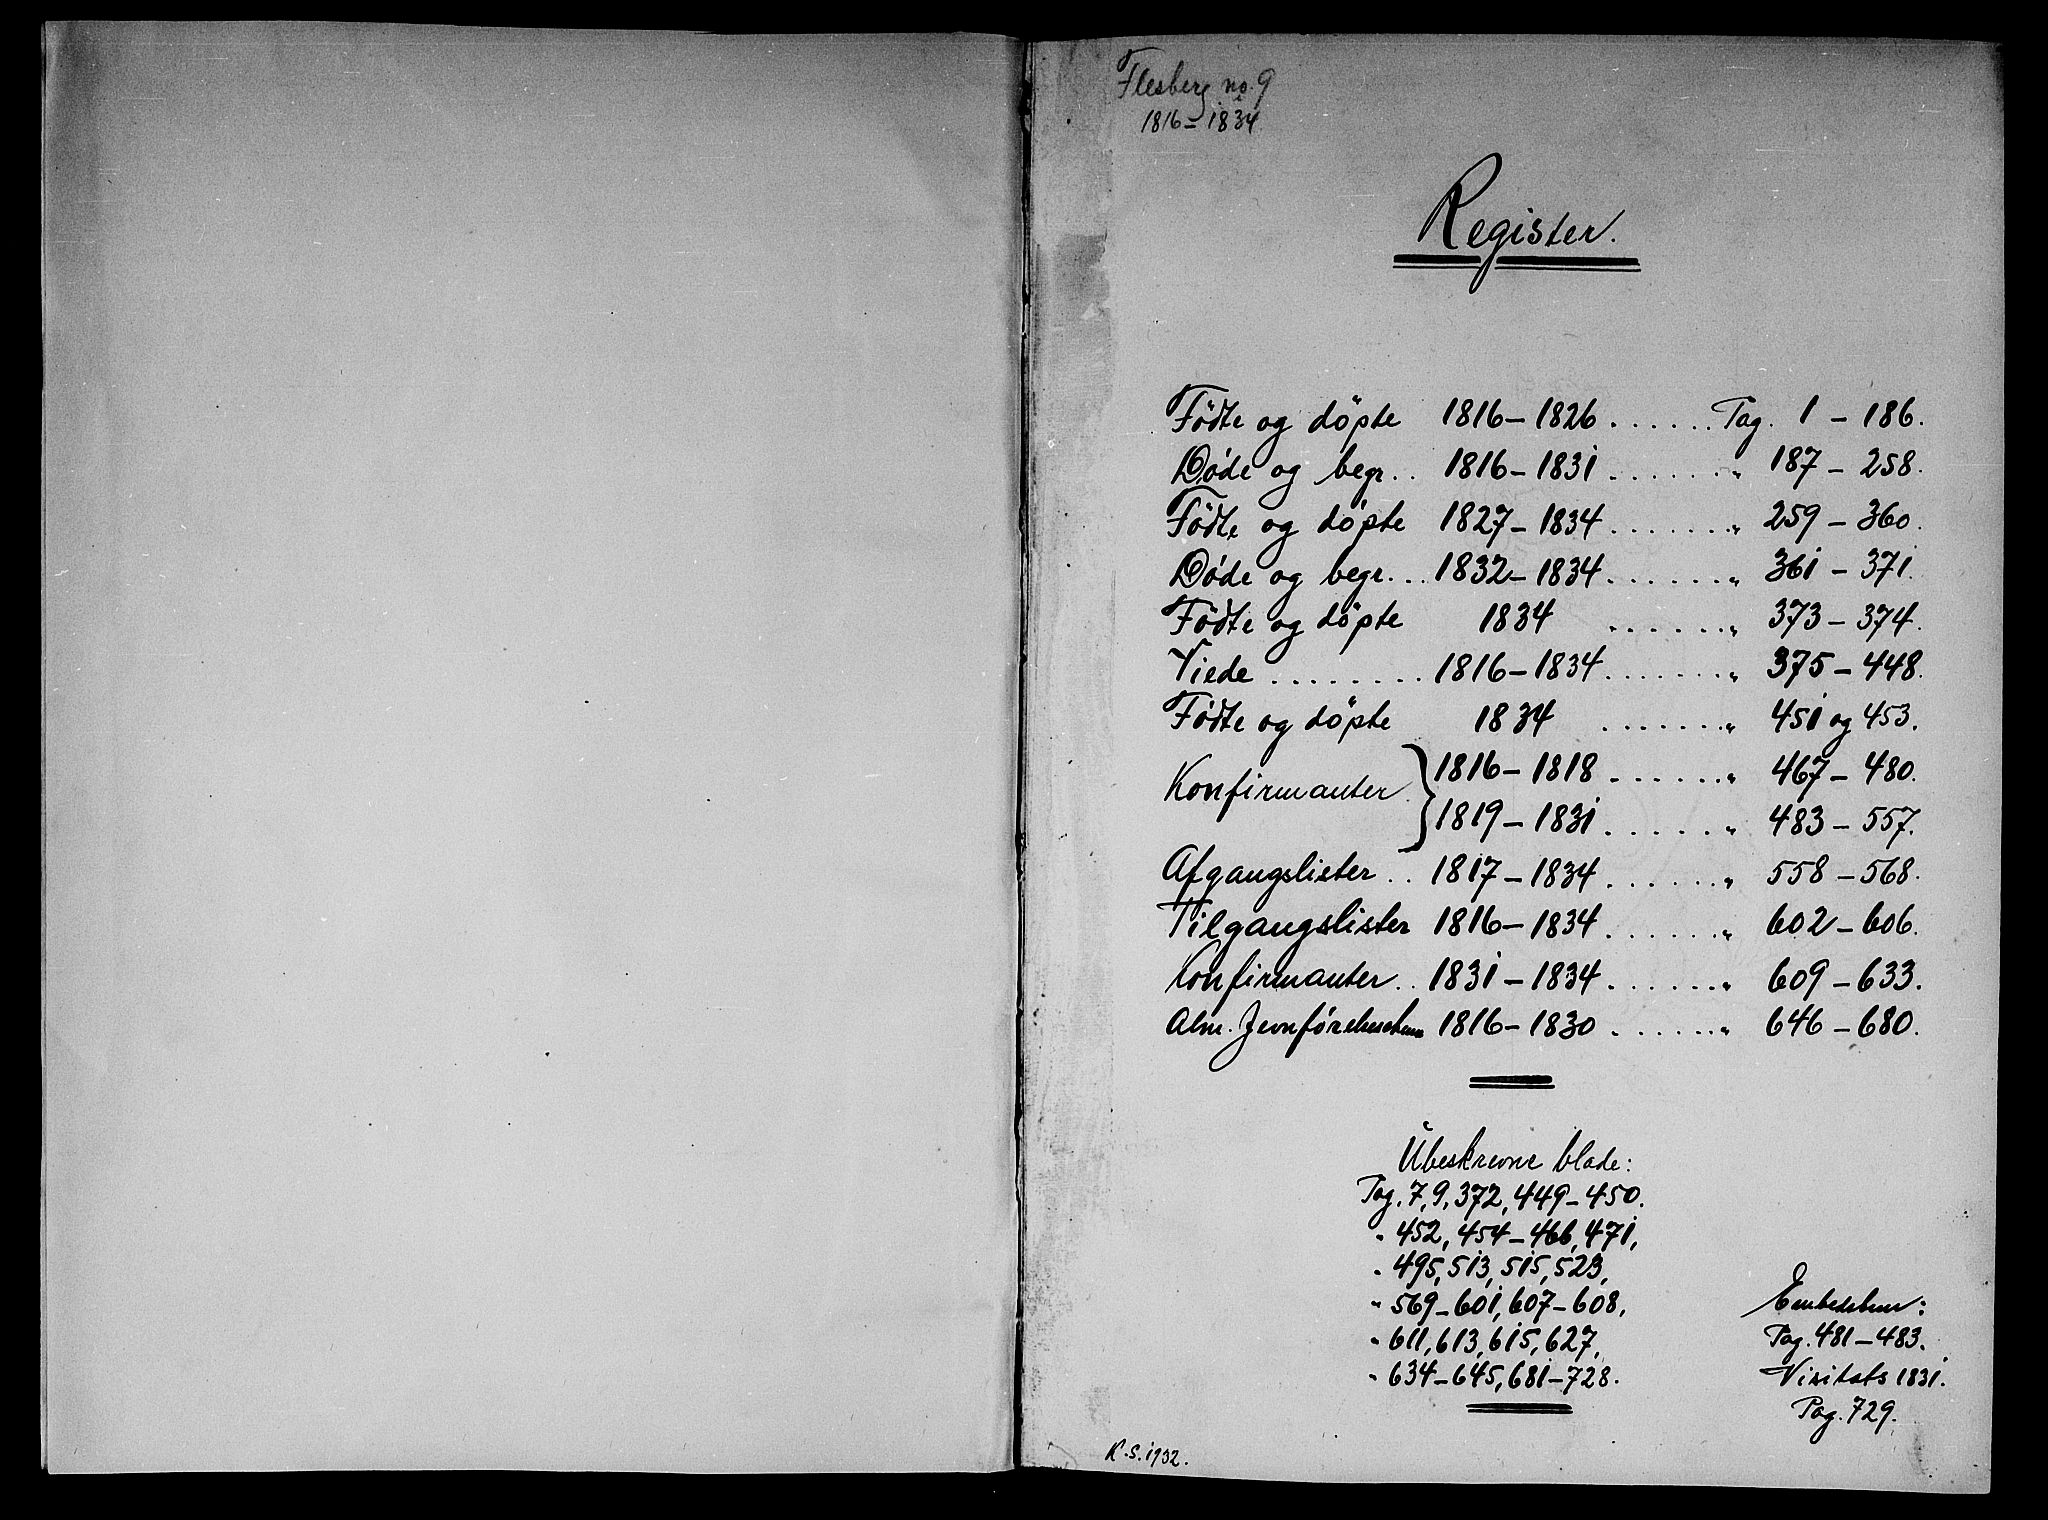 Flesberg no. 9
1816-1834
Register.
Födte og döpte 1816-1826 . . . . . . Pag. 1 - 186.
Døde og begr. . . 1816-1831 . . . . . . " 187 - 258.
Födte og döpte 1827-1834 . . . . . . " 259 - 360.
Døde og begr. . . 1832-1834 . . . . . . " 361 - 371.
Födte og döpte 1834 . . . . . . " 373 - 374.
Viede . . . . . . . . 1816-1834 . . . . . . " 375 - 448.
Födte og döpte 1834 . . . . . . " 451 og 453.
Konfirmanter } 1816-1818 . . . . . . " 467 - 480.
1819-1831 . . . . . . " 483 - 557.
Afgangslister . . 1817-1834 . . . . . . " 558 - 568.
Tilgangslister 1816-1834 . . . . . . " 602 - 606.
Konfirmanter . . 1831-1834 . . . . . . " 609 - 633.
Alm. 1816-1830 . . . . . . " 646 - 680.
Ubeskrevne blade:
Pag. 7, 9, 372, 449-450.
" 452, 454-466, 471,
" 495, 513, 515, 523,
" 569-601, 607-608,
" 611, 613, 615, 627,
" 634-645, 681-728.
Pag. 481-483.
Visitats 1831.
Pag. 729.
K.S. 1932.